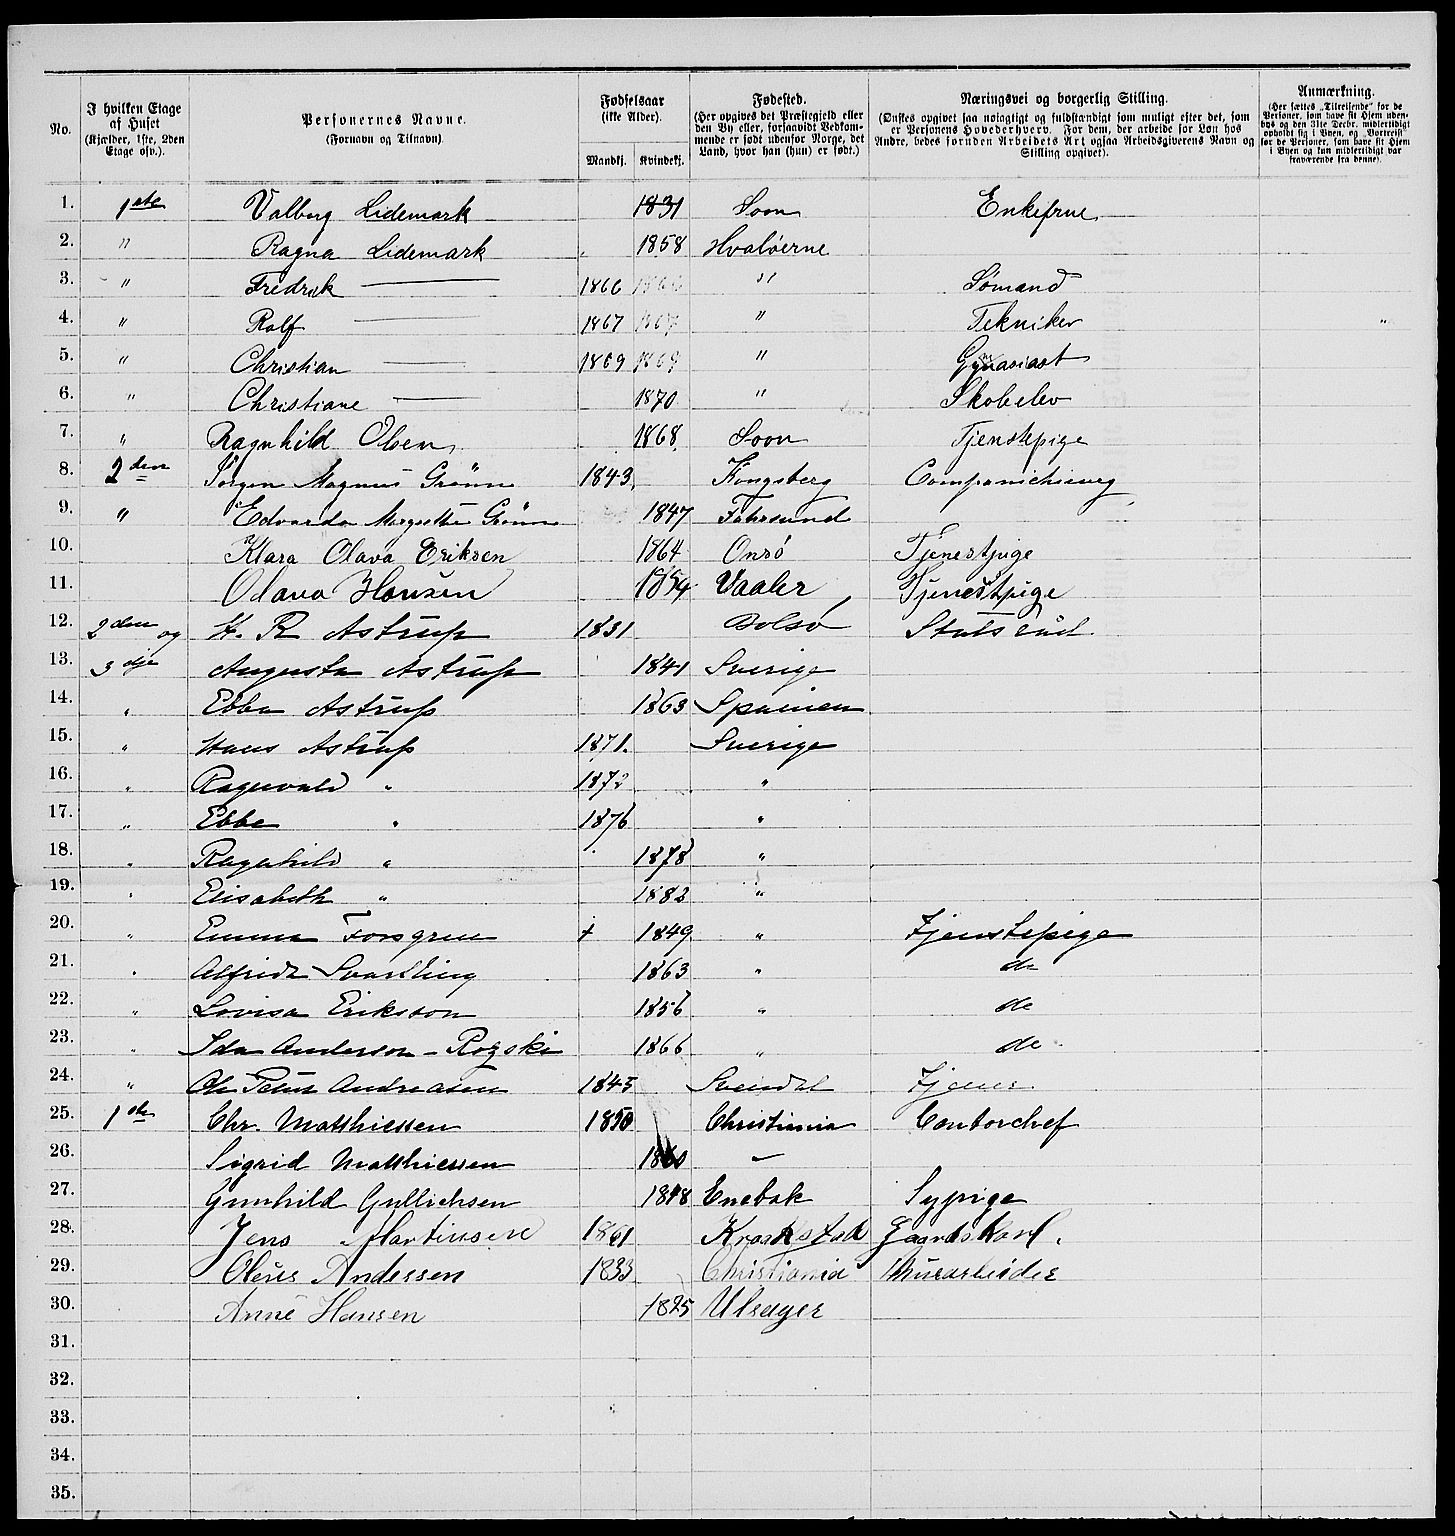 No. I hvilken Etage af Huset (Kjælder, 1ste, 2den Etage osv.). Personernes Navne. (Fornavn og Tilnavn). Fødselsaar (ikke Alder). Mandkj. Kvindekj. Fødested. (Her opgives det Præstegjeld eller den By eller, forsaavidt Vedkommende er født udenfor Norge, det Land, hvor han (hun) er født.) Næringsvei og borgerlig Stilling. (Ønskes opgivet saa nøiagtigt og fuldstændigt som muligt efter det, som er Personens Hovederhverv. For dem, der arbeide for Løn hos Andre, bedes foruden Arbeidets Art ogsaa Arbeidsgiverens Navn og Stilling opgivet). Anmærkning. (Her sættes „Tilreisende" for de Personer, som have sit Hjem udenbys og den 31te Decbr. midlertidigt opholdt sig i Byen, og „Bortreist" for de Personer, som have sit Hjem i Byen og kun midlertidigt var fraværende fra denne).
1. 1ste Valborg Lidemark 1831 Soon Enkefrue
2. " Ragna Lidemark 1858 Hvaløerne
3. " Fredrik — 1866 1866 " Sømand
4. " Rolf — 1867 1867 " Tekniker
5. " Christian — 1869 1869 " Gymnasiast
6. " Christiane — 1870 " Skoleelev
7. " Ragnhild Olsen 1868 Soon Tjenstepige
8. 2den Jørgen Magnus Grønn 1843 Kongsberg
9. " Edvarda Margrethe Grønn 1847 Fahrsund
10. Klara Olava Eriksen 1864 Onsø Tjenestpige
11. Olava Hansen 1854 Vaaler Tjenestpige
12. 2den og H. R. Astrup 1831 Bolsø Statsråd
13. 3dje Augusta Astrup 1841 Sverige
14. " Ebba Astrup 1863 Spanien
15. " Hans Astrup 1871. Sverige
16. " Ragnvald " 1872 "
17. " Ebbe " 1876 "
18. " Ragnhild " 1878 "
19. " Elisabeth " 1882 "
20. " Emma Forsgren + 1849 " Tjenstepige
21. " Alfrida Svartling 1863 " do
22. " Lovisa Eriksson 1856 " do
23. " Ida Anderson - Rogski 1866 " do
24. " Ole Peter Andreasen 1843 Tjener
25. 1ste Chr. Matthiessen 1850 Christiania Contorchef
26. Sigrid Matthiessen 1860 —
27. Gunhild Gullichsen 1848 Enebak Sypige
28. Jens Martinsen 1861 Kraakstad Gaardskarl.
29. Oleus Andersen 1833 Christiania Murarbeider
30. Anne Hansen 1825 Ulsager
31.
32.
33.
34.
35.